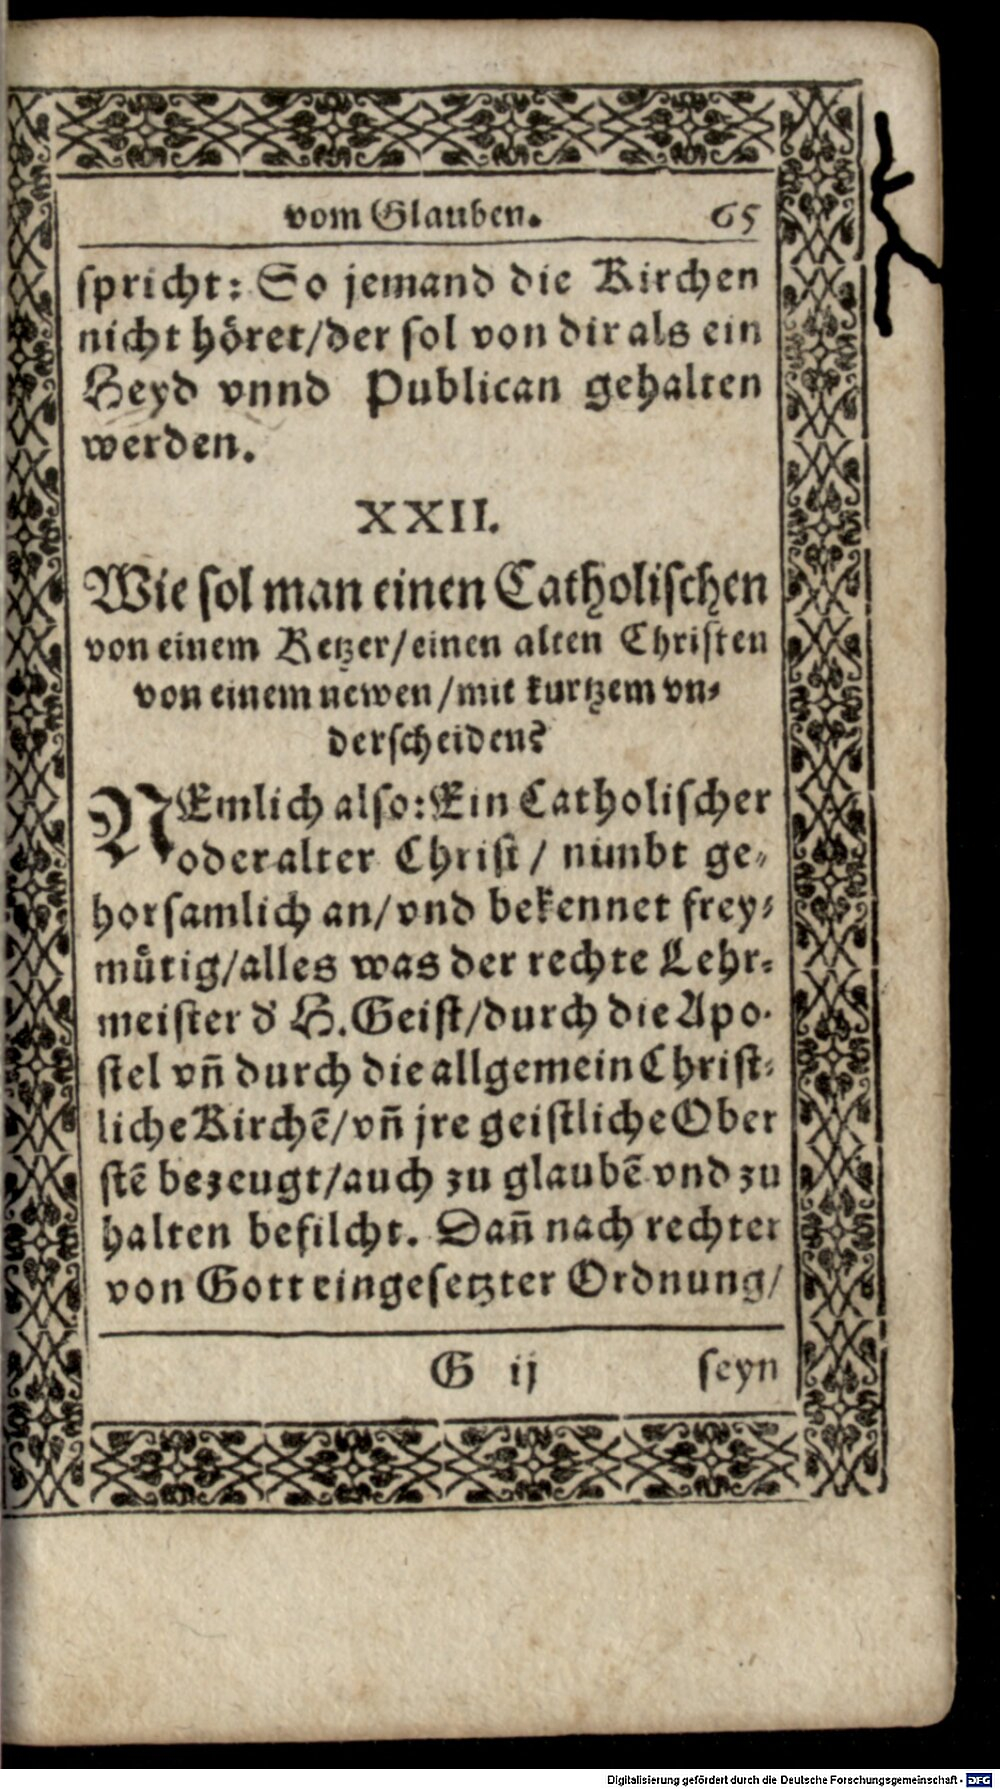 vom Glauben. 65
spricht: So jemand die Kirchen
nicht höret/der sol von dir als ein
Heyd vnnd Publican gehalten
werden.
XXII.
Wie sol man einen Catholischen
von einem Ketzer/einen alten Christen
von einem newen/mit kurtzem vn-
derscheiden?
NEmlich also: Ein Catholischer
oder alter Christ/ nimbt ge-
horsamlich an/vnd bekennet frey-
mütig/alles was der rechte Lehr-
meister d' H. Geist/durch die Apo-
stel vñ durch die allgemein Christ-
liche Kirchẽ/vñ jre geistliche Ober
stẽ bezeugt/auch zu glaubẽ vnd zu
halten befilcht. Dañ nach rechter
von Gott eingesetzter Ordnung/
G ij seyn
Digitalisierung gefördert durch die Deutsche Forschungsgemeinschaft - DFG